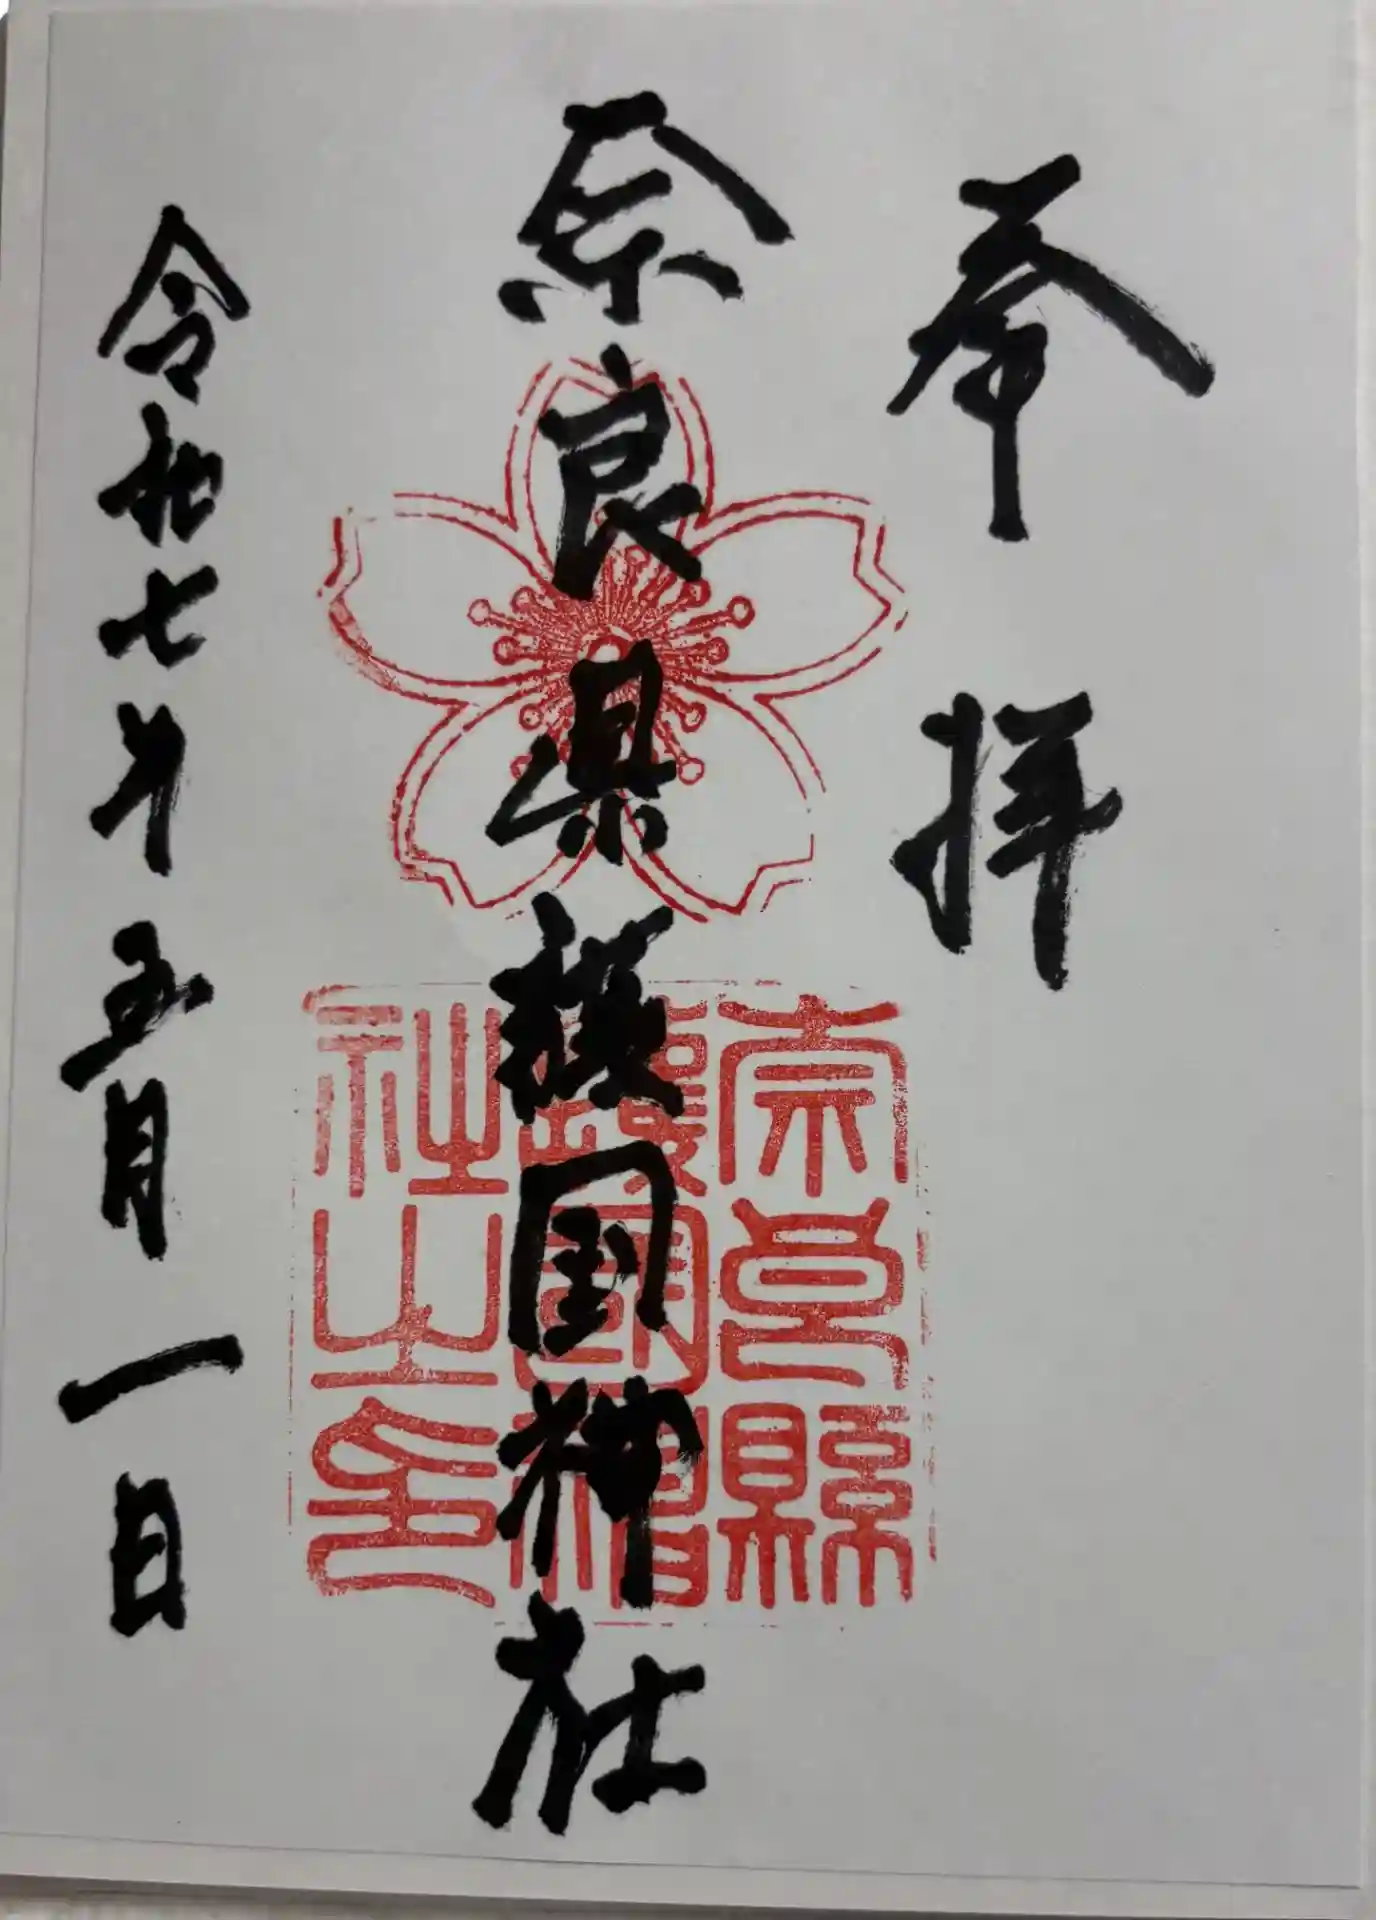 奉拝
奈良県護国神社
奈良縣
護國神
社之印
令和七年五月一日